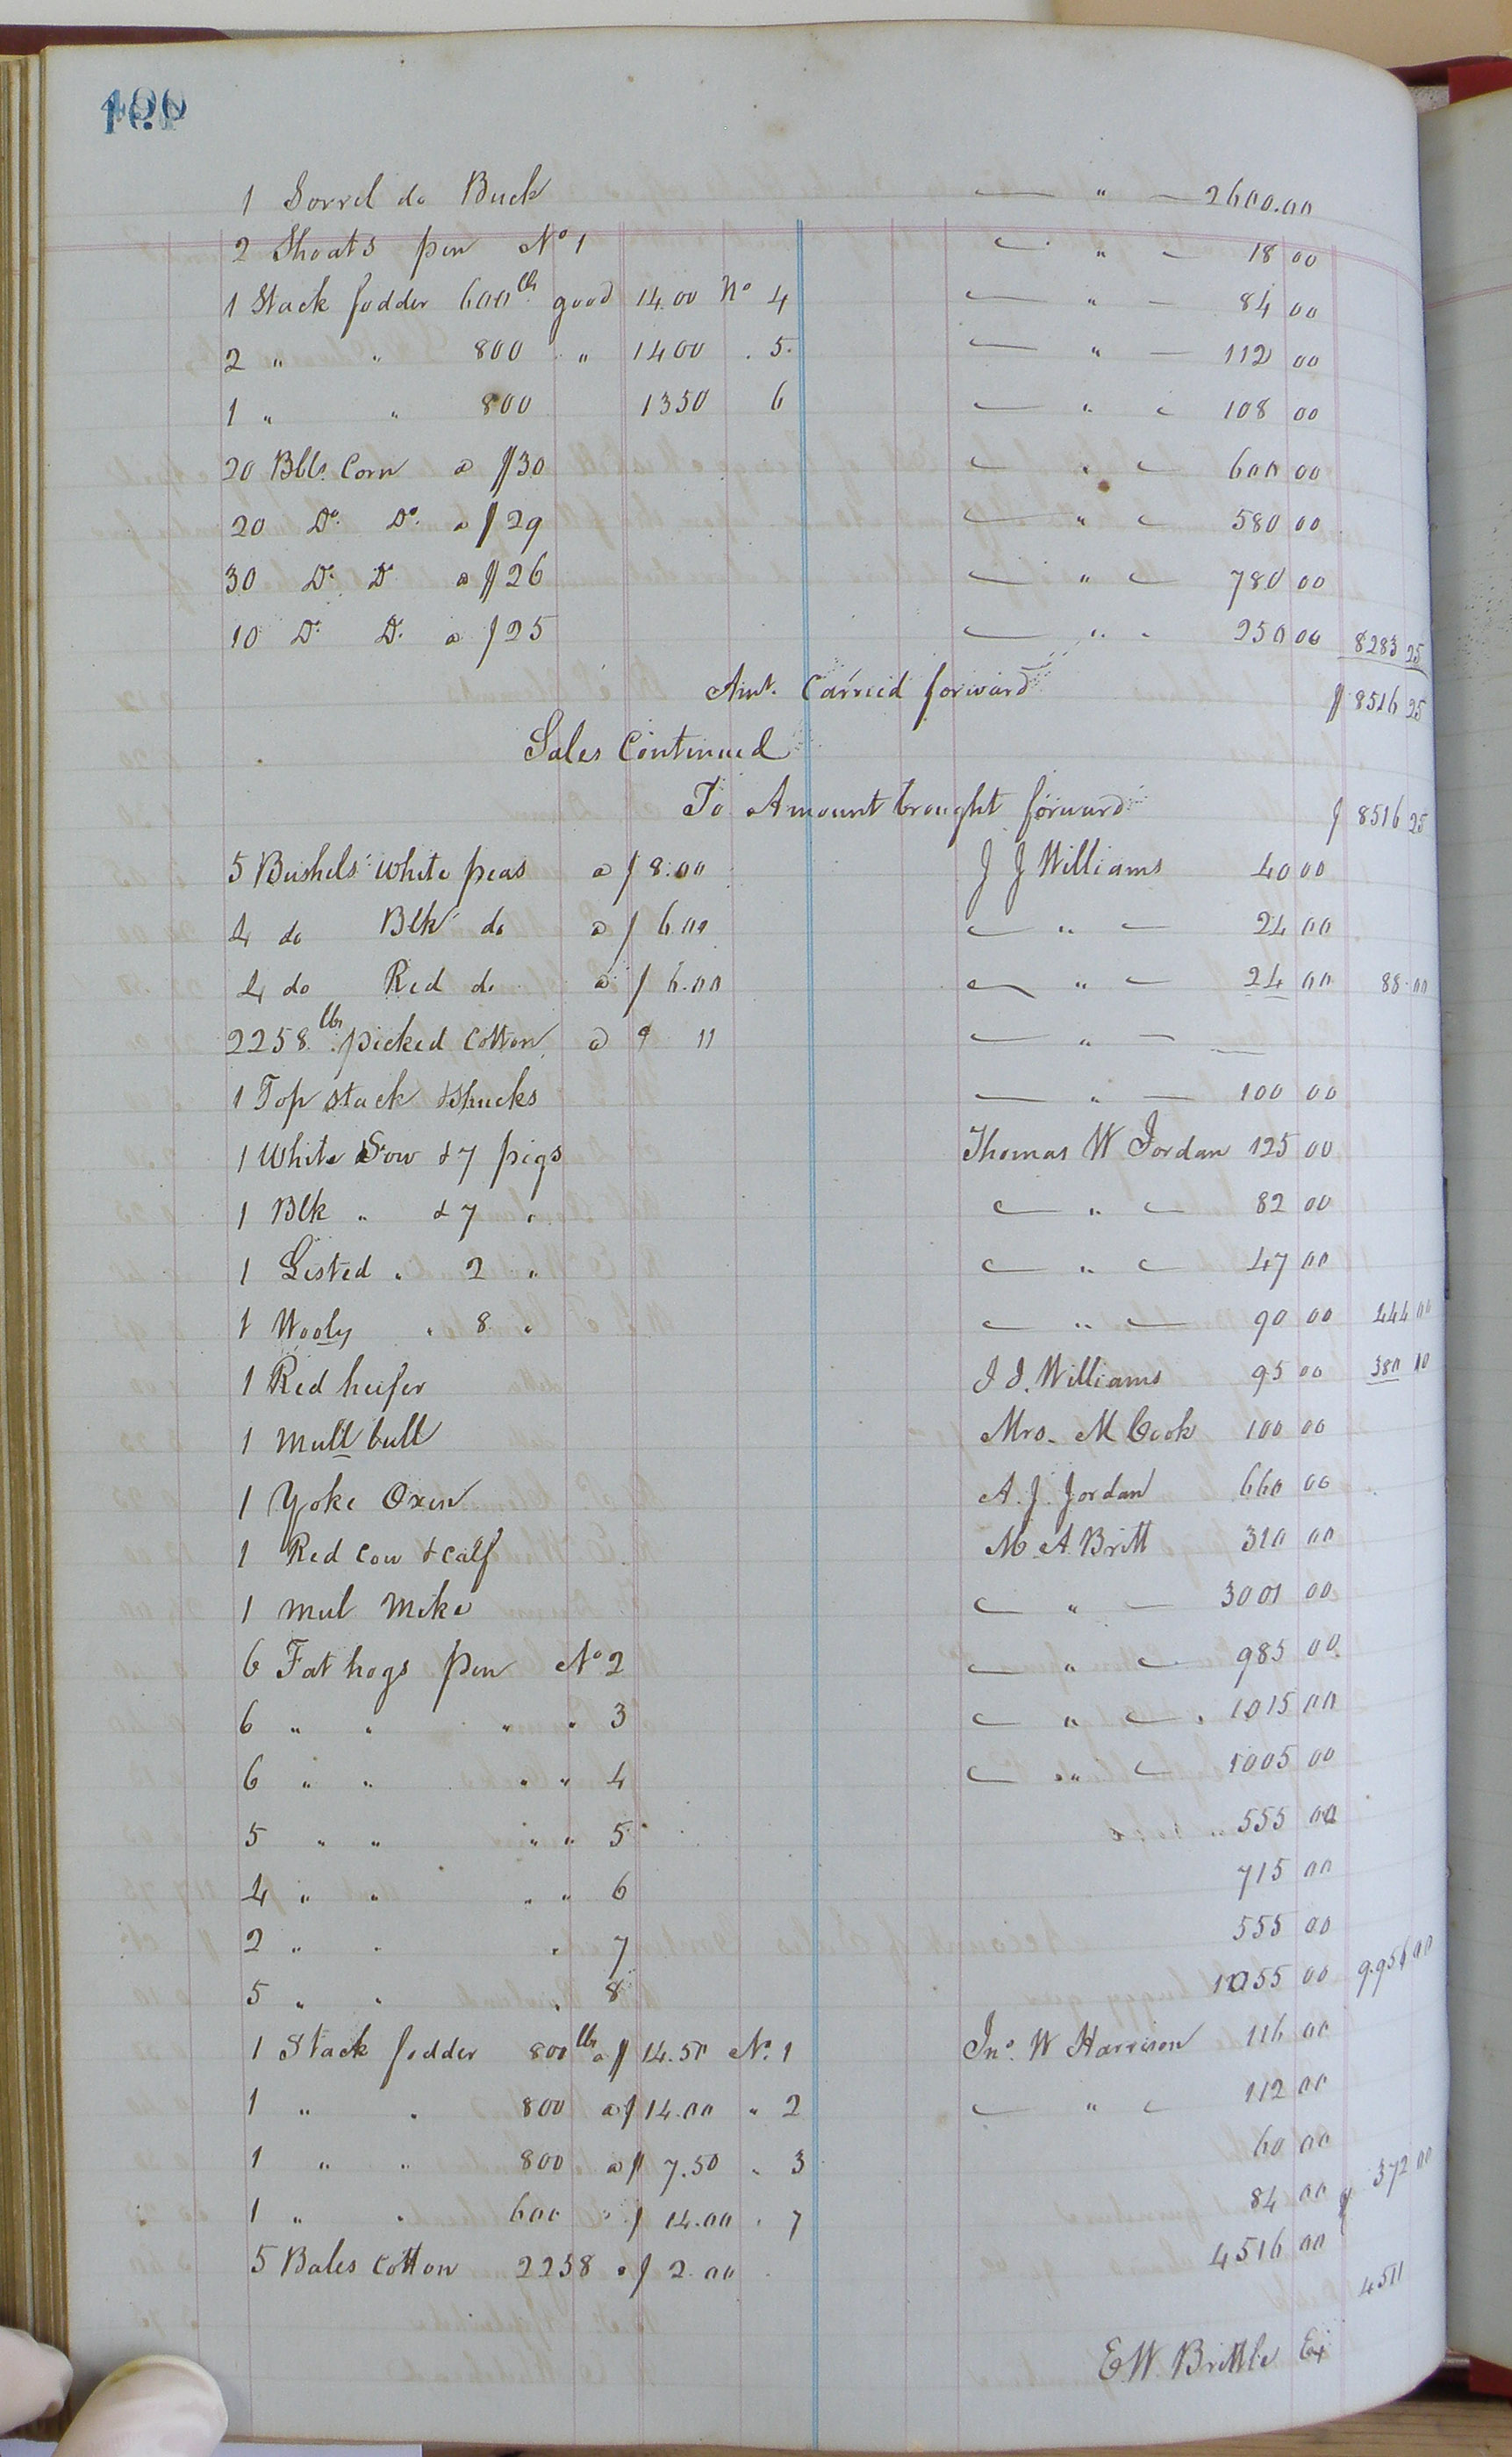 1 Sorrel do Buck — " — 2600.00
2 Shoats pen No 1 — " — 18 00
1 Stack fodder 600 lb good 14.00 No 4 — " — 84 00
2 " " 800 " 1400 . 5. — " — 112 00
1 " " 800 1350 6 — " — 108 00
20 Bbls. Corn a $30 — " — 600 00
20 Do. Do. a $29 — " — 580 00
30 Do. Do a $26 — " — 780 00
10 Do. Do. a $25 — " — 250 00 8283 25
Amt. Carried forward $ 8516 25
Sales Continued
To Amount brought forward $ 8516 25
5 Bushels White peas a $ 8.00 J J Williams 40 00
4 do Blk do a $ 6.00 — " — 24 00
4 do Red do a $ 6.00 — " — 24 00 88.00
2258 lbs picked Cotton a 11 — " —
1 Top stack & Shucks — " — 100 00
1 White Sow & 7 pigs Thomas W Jordan 125 00
1 Blk " & 7 " — " — 82 00
1 Listed " 2 " — " — 47 00
1 Wooly " 8 " — " — 90 00 444 00
1 Red heifer J J. Williams 95 00 380 00
1 Mull bull Mrs. M Cook 100 00
1 Yoke Oxen A. J. Jordan 660 00
1 Red Cow & calf M A Britt 310 00
1 Mul Mike — " — 3001 00
6 Fat hogs pen No 2 — " — 985 00
6 " " " " 3 — " — 1015 00
6 " " " " 4 — " — 1005 00
5 " " " " 5 555 00
4 " " " " 6 715 00
2 " " " 7 555 00
5 " " " 8 1055 00 9.956 00
1 Stack fodder 800 lbs a $ 14.50 No. 1 Jno. W Harrison 116 00
1 " " 800 a $ 14.00 " 2 — " — 112 00
1 " " 800 a $ 7.50 " 3 60 00
1 " " 600 " $ 14.00 " 7 84 00 372 00
5 Bales Cotton 2258 a $ 2.00 4516 00
E. W. Brittle Ex